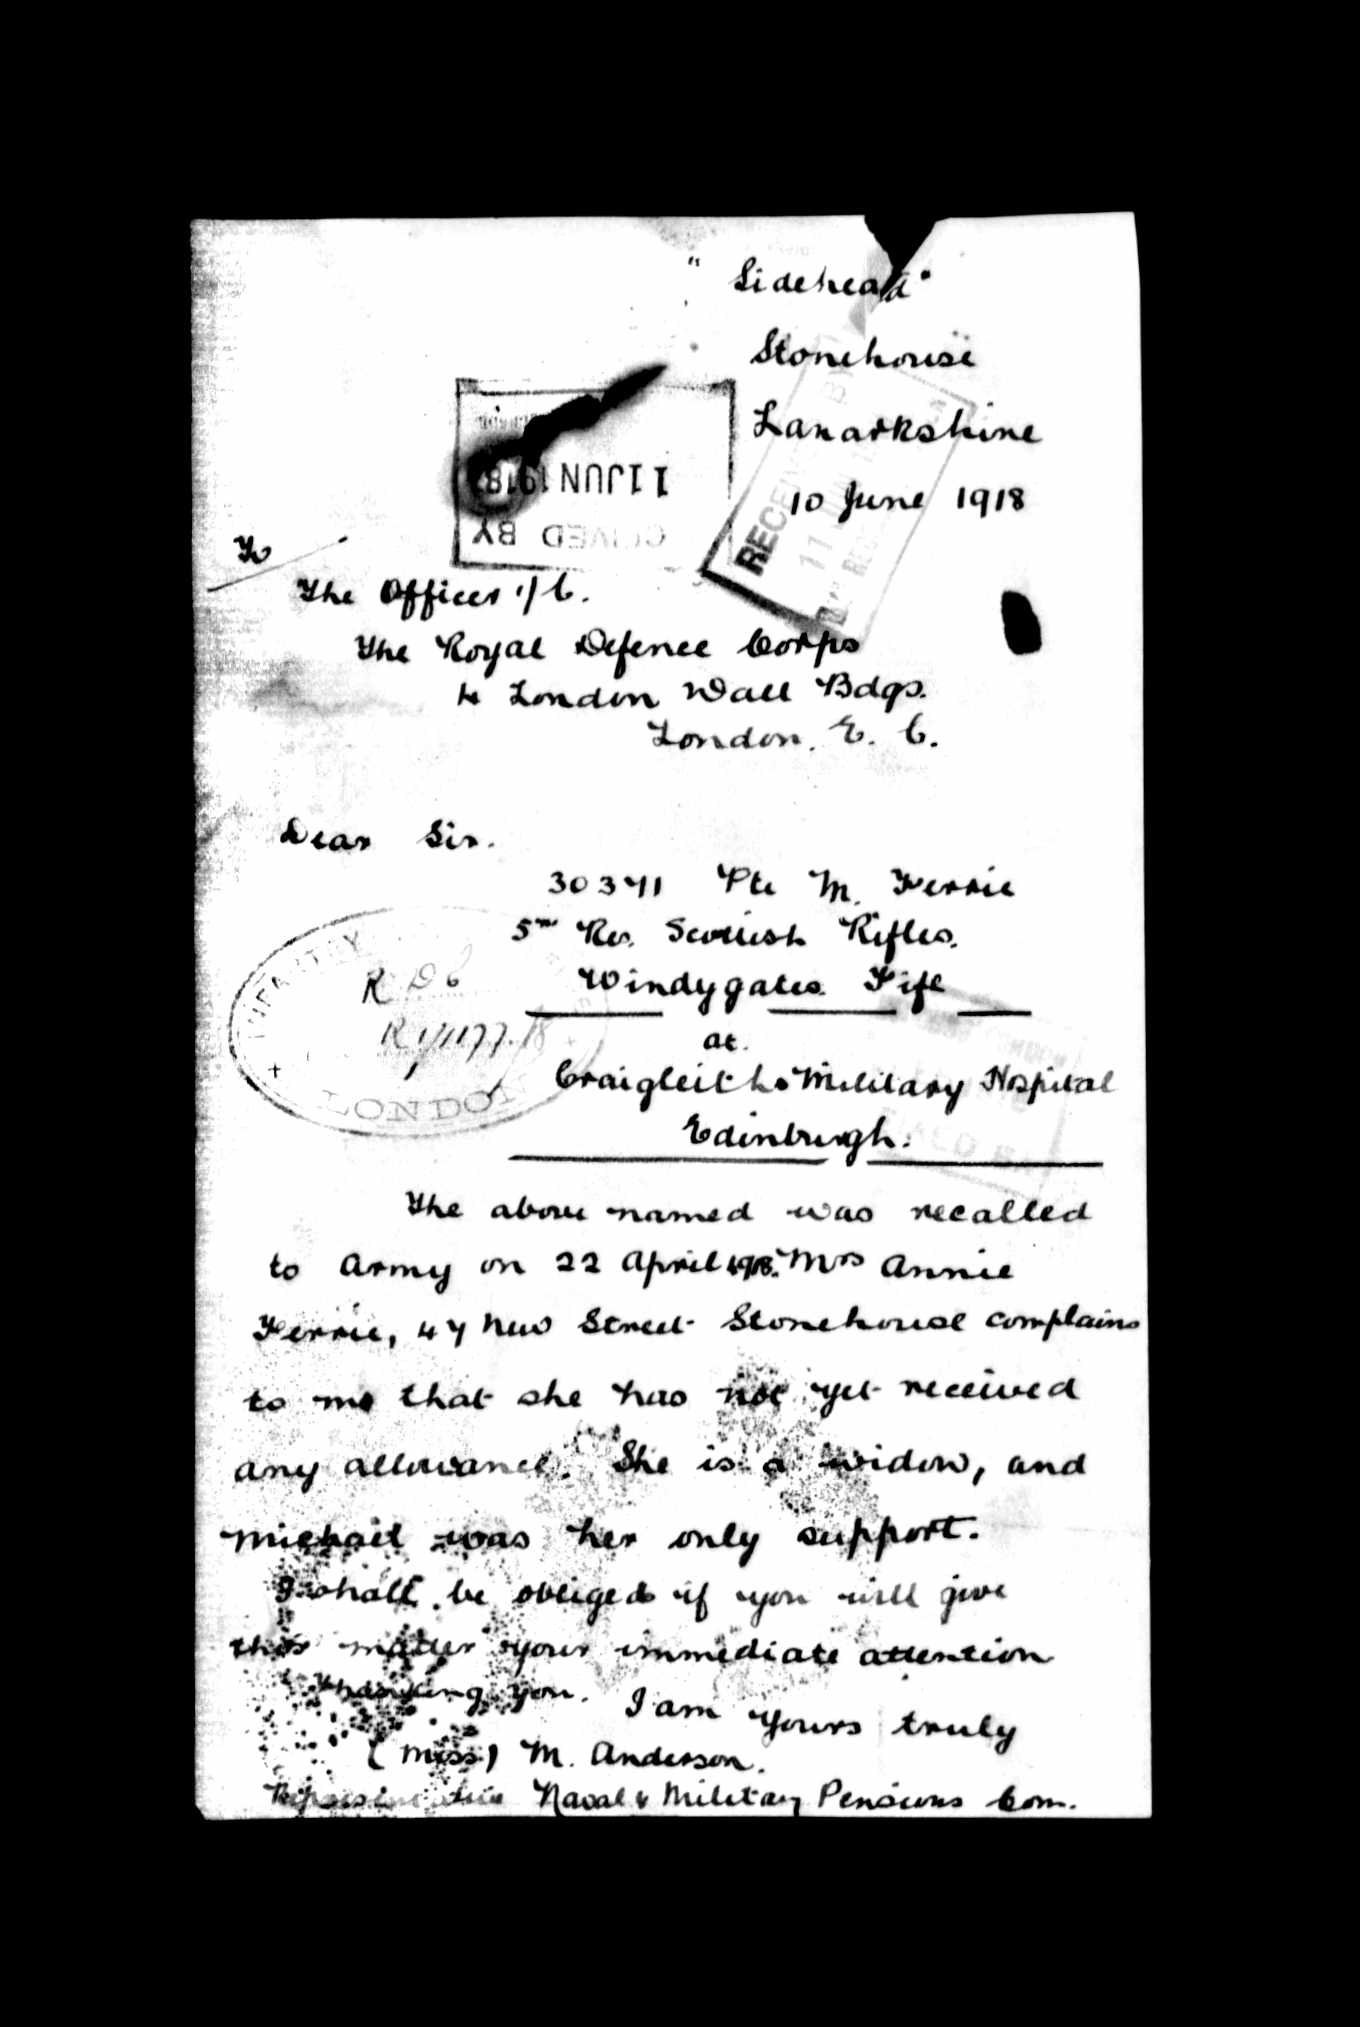 "Sidehead"
Stonehouse
Lanarkshire
10 June 1918
11 JUN 1918
RECEIVED BY
To
The Officer i/C.
The Royal Defence Corps
4 London Wall Bdgs.
London. E. C.
Dear Sir.
30371 Pte M. Ferrie
5th Res. Scottish Rifles.
Windygates. Fife
at
Craigleith Military Hospital
Edinburgh.
INFANTRY
R D C
LONDON
The above named was recalled
to Army on 22 April 1918. Mrs Annie
Ferrie, 47 New Street Stonehouse complains
to me that she has not yet received
any allowance. She is a widow, and
Michael was her only support.
I shall be obliged if you will give
this matter your immediate attention
Thanking you. I am yours truly
(Miss) M. Anderson.
Representative Naval & Military Pensions Com.